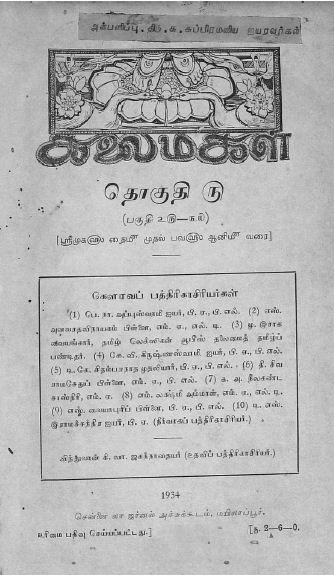 அன்பளிப்பு. திரு. க. சுப்பிரமணிய ஐயரவர்கள்
கலைமகள்
தொகுதி ௫
(பகுதி ௨௫—௩௦)
[ஸ்ரீமுகவௗ தைமீ முதல் பவவௗ ஆனிமீ வரை]
கௌரவப் பத்திரிகாசிரியர்கள்
(1) பெ. நா. அப்புஸ்வாமி ஐயர், பி. ஏ., பி. எல். (2) எஸ்.
அனவரதவிநாயகம் பிள்ளை, எம். ஏ., எல். டி. (3) மு. இராக
வையங்கார், தமிழ் லெக்ஸிகன் ஆபீஸ் தலைமைத் தமிழ்ப்
பண்டிதர். (4) கே. வி. கிருஷ்ணஸ்வாமி ஐயர், பி. ஏ., பி. எல்.
(5) டி. கே. சிதம்பரநாத முதலியார், பி. ஏ., பி. எல். (6) தி. சிவ
ராமசேதுப் பிள்ளை, எம். ஏ., பி. எல். (7) க. அ. நீலகண்ட
சாஸ்திரி, எம். ஏ. (8) எம். லக்ஷ்மி அம்மாள், எம். ஏ., எல். டி.
(9) எஸ். வையாபுரிப் பிள்ளை, பி. ஏ., பி. எல். (10) டி. எஸ்.
இராமச்சந்திர ஐயர், பி. ஏ. (நிர்வாகப் பத்திரிகாசிரியர்.)
வித்துவான் கி. வா. ஜகந்நாதையர் (உதவிப் பத்திரிகாசிரியர்.)
1934
சென்னை லா ஜர்னல் அச்சுக்கூடம், மயிலாப்பூர்.
உரிமை பதிவு செய்யப்பட்டது.]
[ரூ. 2—6—0.